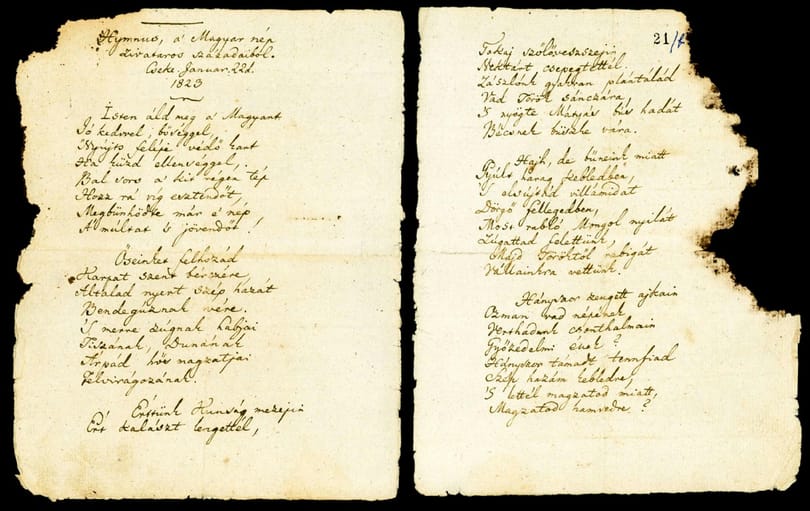 Hymnus, a' Magyar nép
zivataros századaiból.
Cseke Januar. 22d.
1823
Isten áld meg a' Magyart
Jó kedvvel, bőséggel,
Nyújts feléje védő kart
Ha küzd ellenséggel,
Bal sors a' kit régen tép
Hozz rá víg esztendőt,
Megbünhödte már e' nép
A' múltat 's jövendőt!
Őseinket felhozád
Kárpát szent bérczére,
Általad nyert szép hazát
Bendegúznak vére.
'S merre zúgnak habjai
Tiszának, Dunának
Árpád hős magzatjai
Felvirágozának.
Értünk Kunság mezejin
Ért kalászt lengettél,
21/1
Tokaj szőlővesszejin
Nektárt csepegtettél.
Zászlónk gyakran plántálád
Vad Török sánczára,
'S nyögte Mátyás bús hadát
Bécsnek büszke vára.
Hajh, de bűneink miatt
Gyúlt harag kebledben,
'S elsújtád villámidat
Dörgő fellegedben,
Most rabló Mongol nyilát
Zúgattad felettünk,
Majd Töröktől rabigát
Vállainkra vettünk.
Hányszor zengett ajkain
Ozman vad népének
Vert hadunk csonthalmain
Győzedelmi ének?
Hányszor támadt tenn fiad
Szép hazám kebledre,
'S lettél magzatod miatt,
Magzatod hamvvedre?